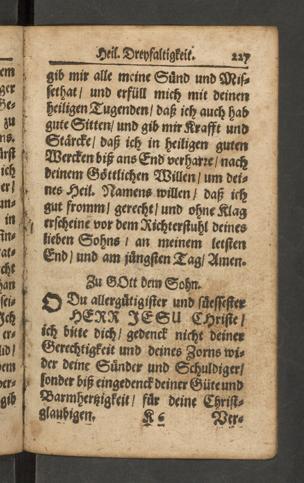 Heil. Dreyfaltigkeit. 227
gib mir alle meine Sünd und Mis-
sethat/ und erfüll mich mit deinen
heiligen Tugenden/ daß ich auch hab
gute Sitten/ und gib mir Krafft und
Stärcke/ daß ich in heiligen guten
Wercken biß ans End verharre/ nach
deinem Göttlichen Willen/ um dei-
nes Heil. Namens willen/ daß ich
gut fromm/ gerecht/ und ohne Klag
erscheine vor dem Richterstuhl deines
lieben Sohns/ an meinem letsten
End/ und am jüngsten Tag/ Amen.
Zu GOtt dem Sohn.
O Du allergütigister und süessester
HERR JESU CHriste/
ich bitte dich/ gedenck nicht deiner
Gerechtigkeit und deines Zorns wi-
der deine Sünder und Schuldiger/
sonder biß eingedenck deiner Güte und
Barmhertzigkeit/ für deine Christ-
glaubigen. K 6 Ver-